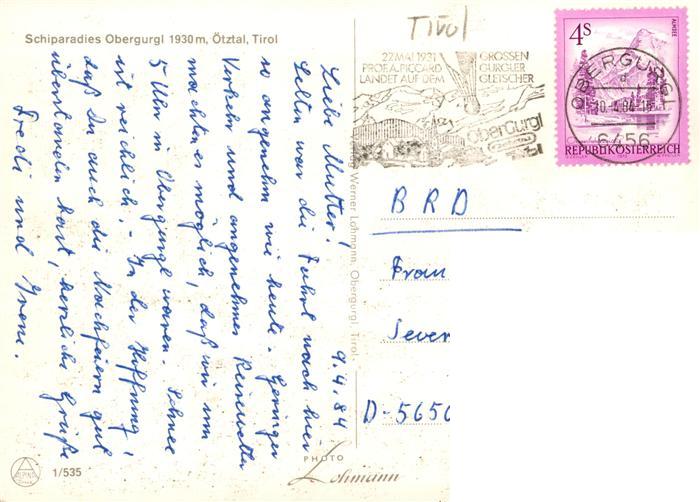 Schiparadies Obergurgl 1930 m, Ötztal, Tirol
Tirol
22.MAI 1931
PROF.A.PICCARD
LANDET AUF DEM
GROSSEN
GURGLER
GLETSCHER
Obergurgl
Tirol
ALMSEE
4S
REPUBLIK ÖSTERREICH
OBERGURGL
d
10.-4.84-16
6456
9.4.84
Liebe Mutter!
Selten war die Fahrt nach hier
so angenehm wie heute. Geringer
Verkehr und angenehmes Reisewetter
machten es möglich, daß wir um
5 Uhr in Obergurgl waren. Schnee
ist reichlich. - In der Hoffnung,
daß Du auch die Nachfeiern gut
überstanden hast, herzliche Grüße
Fredi und Irene.
Werner Lohmann, Obergurgl, Tirol
BRD
Frau
Sever
D-5650
PHOTO
Lohmann
ALPINA
1/535